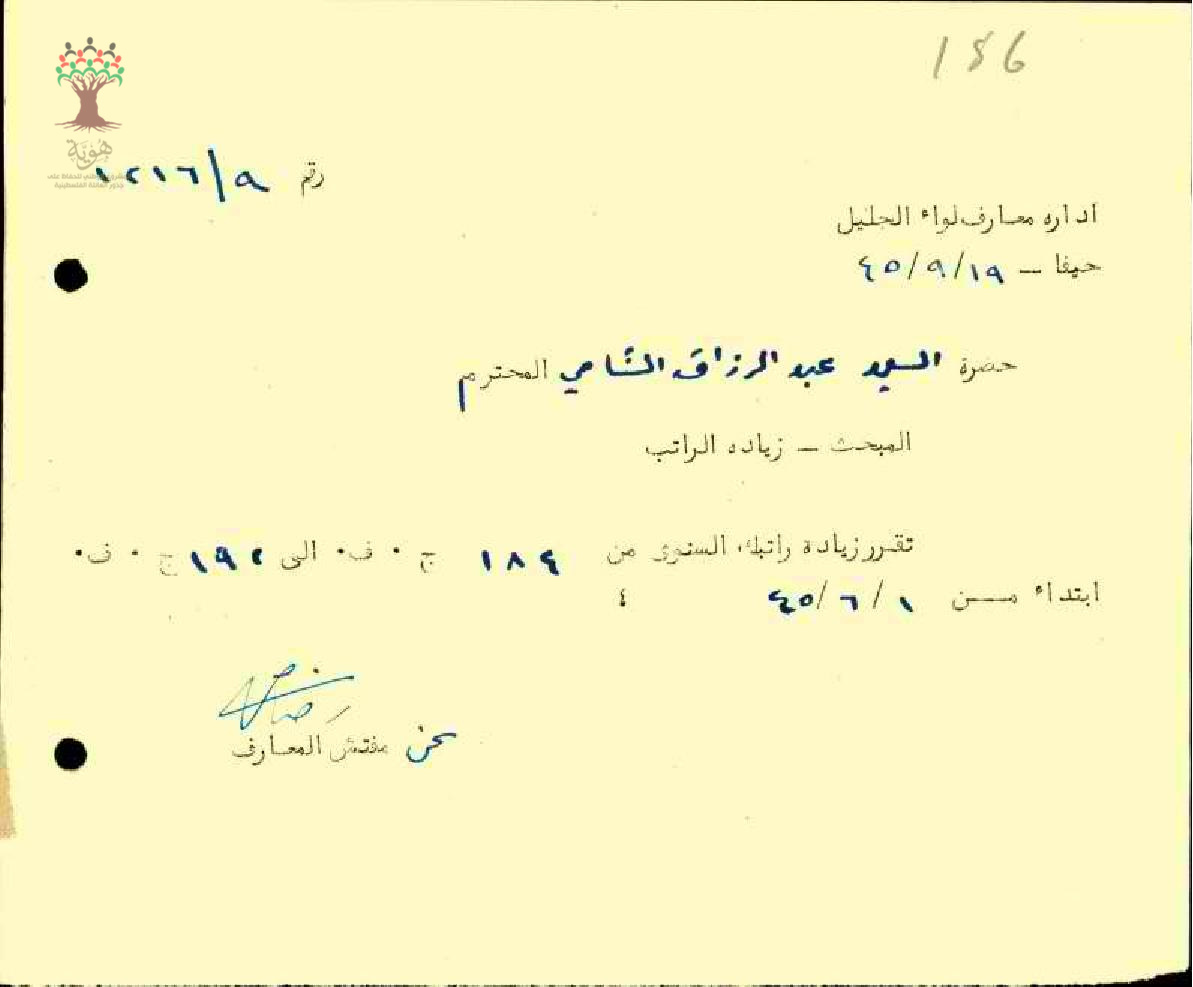 186
هوية
رقم ٩/١٢١٦
اداره معارف لواء الجليل
حيفا – ٤٥/٩/١٩
حضرة السيد عبد الرزاق الشامي المحترم
المبحث – زياده الراتب
تقرر زيادة راتبك السنوى من ١٨٤ ج ٠ ف٠ الى ١٩٢ ج ٠ ف٠
ابتداء مــن ٤٥/٦/١ ٤
مفتش المعارف